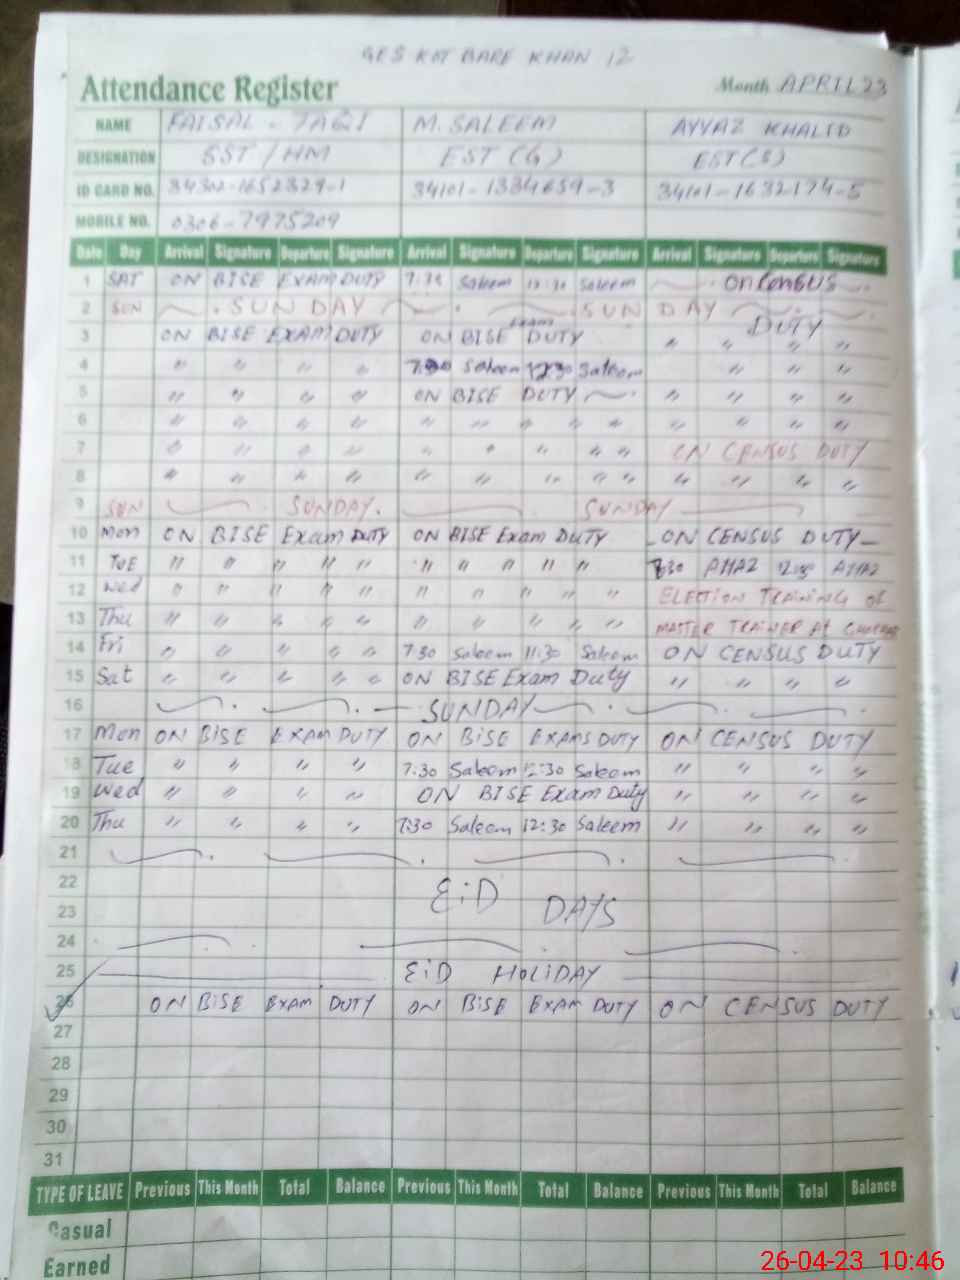 GES KOT BARE KHAN 12
Attendance Register Month APRIL 23
NAME FAISAL - TAQI M. SALEEM AYYAZ KHALID
DESIGNATION SST / HM EST (G) EST (S)
ID CARD NO. 34302-1652329-1 34101-1334659-3 34101-1632174-5
MOBILE NO. 0306-7975209
Date Day Arrival Signature Departure Signature Arrival Signature Departure Signature Arrival Signature Departure Signature
1 SAT ON BISE EXAM DUTY Saleem 12:30 Saleem On Census
2 SUN SUNDAY SUNDAY
DUTY
3 ON BISE EXAM DUTY ON BISE Exam DUTY " " " "
4 " " " " 7:30 Saleem 12:30 Saleem " " "
5 " " " " ON BISE DUTY " " " "
6 " " " " " " " " " " " " "
7 " " " " " " " " " ON CENSUS DUTY
8 " " " " " " " " " " " " "
9 SUN SUNDAY. SUNDAY
10 Mon ON BISE Exam DUTY ON BISE Exam DUTY ON CENSUS DUTY
11 TUE " " " " " " " " " " 12:30
12 Wed " " " " " " " " " " ELECTION TRAINING OF
13 Thu " " " " " " " " " " MASTER TRAINER At
14 Fri " " " " " 7:30 Saleem 11:30 Saleem ON CENSUS DUTY
15 Sat " " " " " ON BISE Exam Duty " " " "
16 SUNDAY
17 Mon ON BISE EXAM DUTY ON BISE EXAMS DUTY ON CENSUS DUTY
18 Tue " " " " 7:30 Saleem 12:30 Saleem " " " "
19 Wed " " " " ON BISE Exam Duty " " " "
20 Thu " " " " 7:30 Saleem 12:30 Saleem " " " "
21
22 EiD
23 DAYS
24
25 EiD HOLiDAY
26 ON BISE EXAM DUTY ON BISE EXAM DUTY ON CENSUS DUTY
27
28
29
30
31
TYPE OF LEAVE Previous This Month Total Balance Previous This Month Total Balance Previous This Month Total Balance
Casual
Earned
26-04-23 10:46